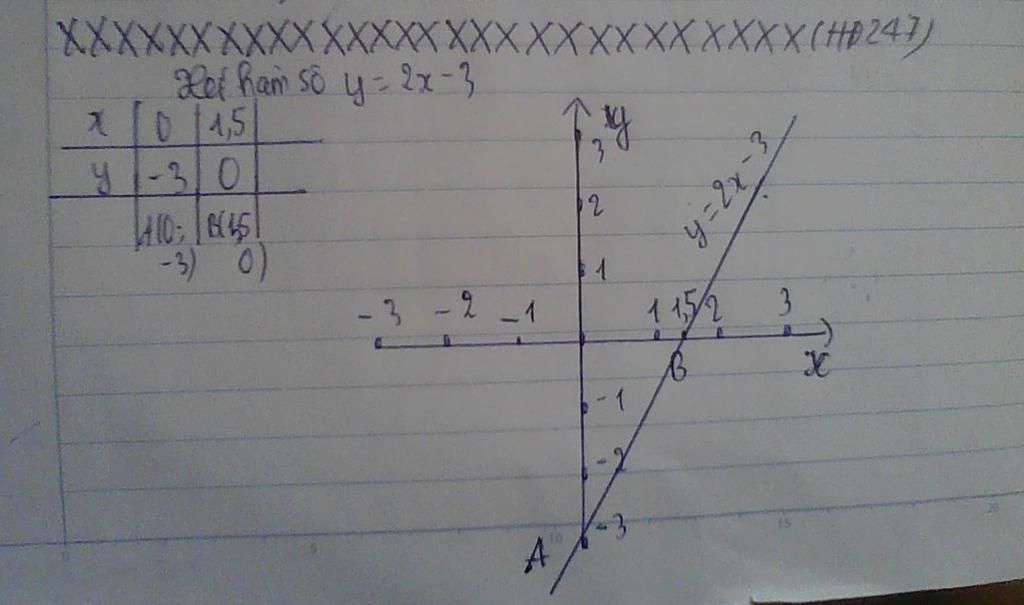 XXXXXXXXXXXXXXXXXXXXXXXXXXXXX(HD247)
Xét hàm số y = 2x - 3
x 0 1,5
y -3 0
A(0; B(1,5
-3) 0)
y
3
2
1
y = 2x - 3
-3 -2 -1 1 1,5 2 3
B x
-1
-2
-3
A
0 5 10 15 20